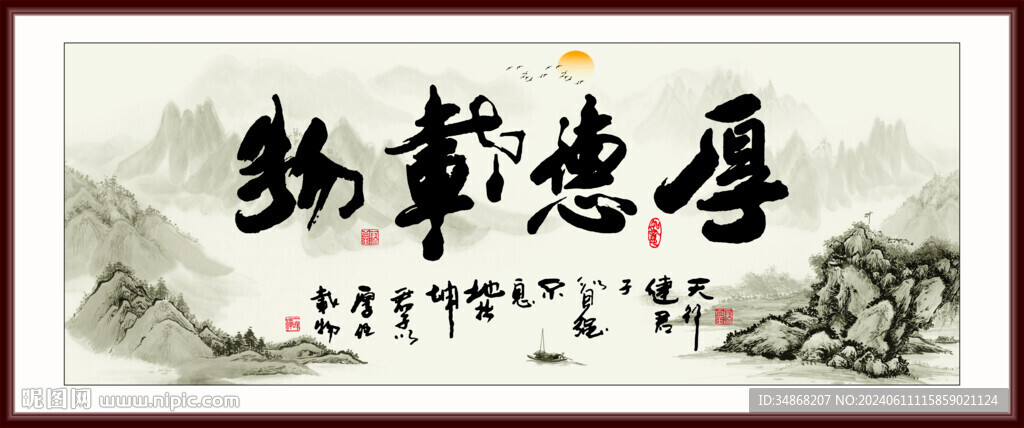 厚德載物
天行
健君
子
以自強
不
息
地势
坤
君子以
厚德
載物
昵图网 www.nipic.com
ID:34868207 NO:20240611115859021124